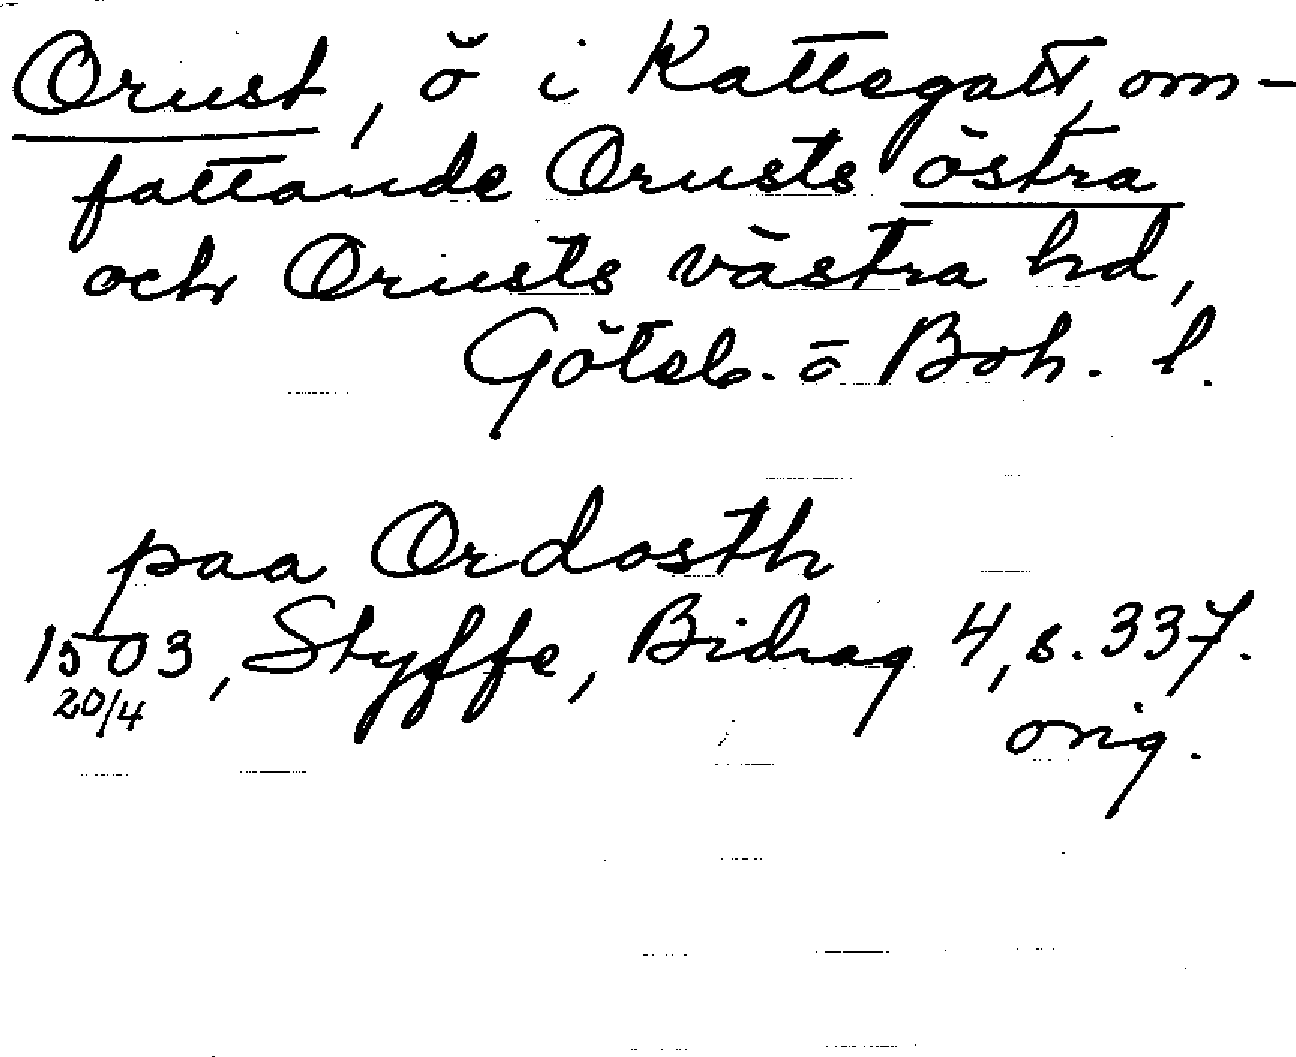 Orust, ö i Kattegatt, om-
fattande Orusts östra
och Orusts västra hd,
Göteb. o Boh. l.
paa Ordosth
1503, Styffe, Bidrag 4, s. 337.
20/4
orig.